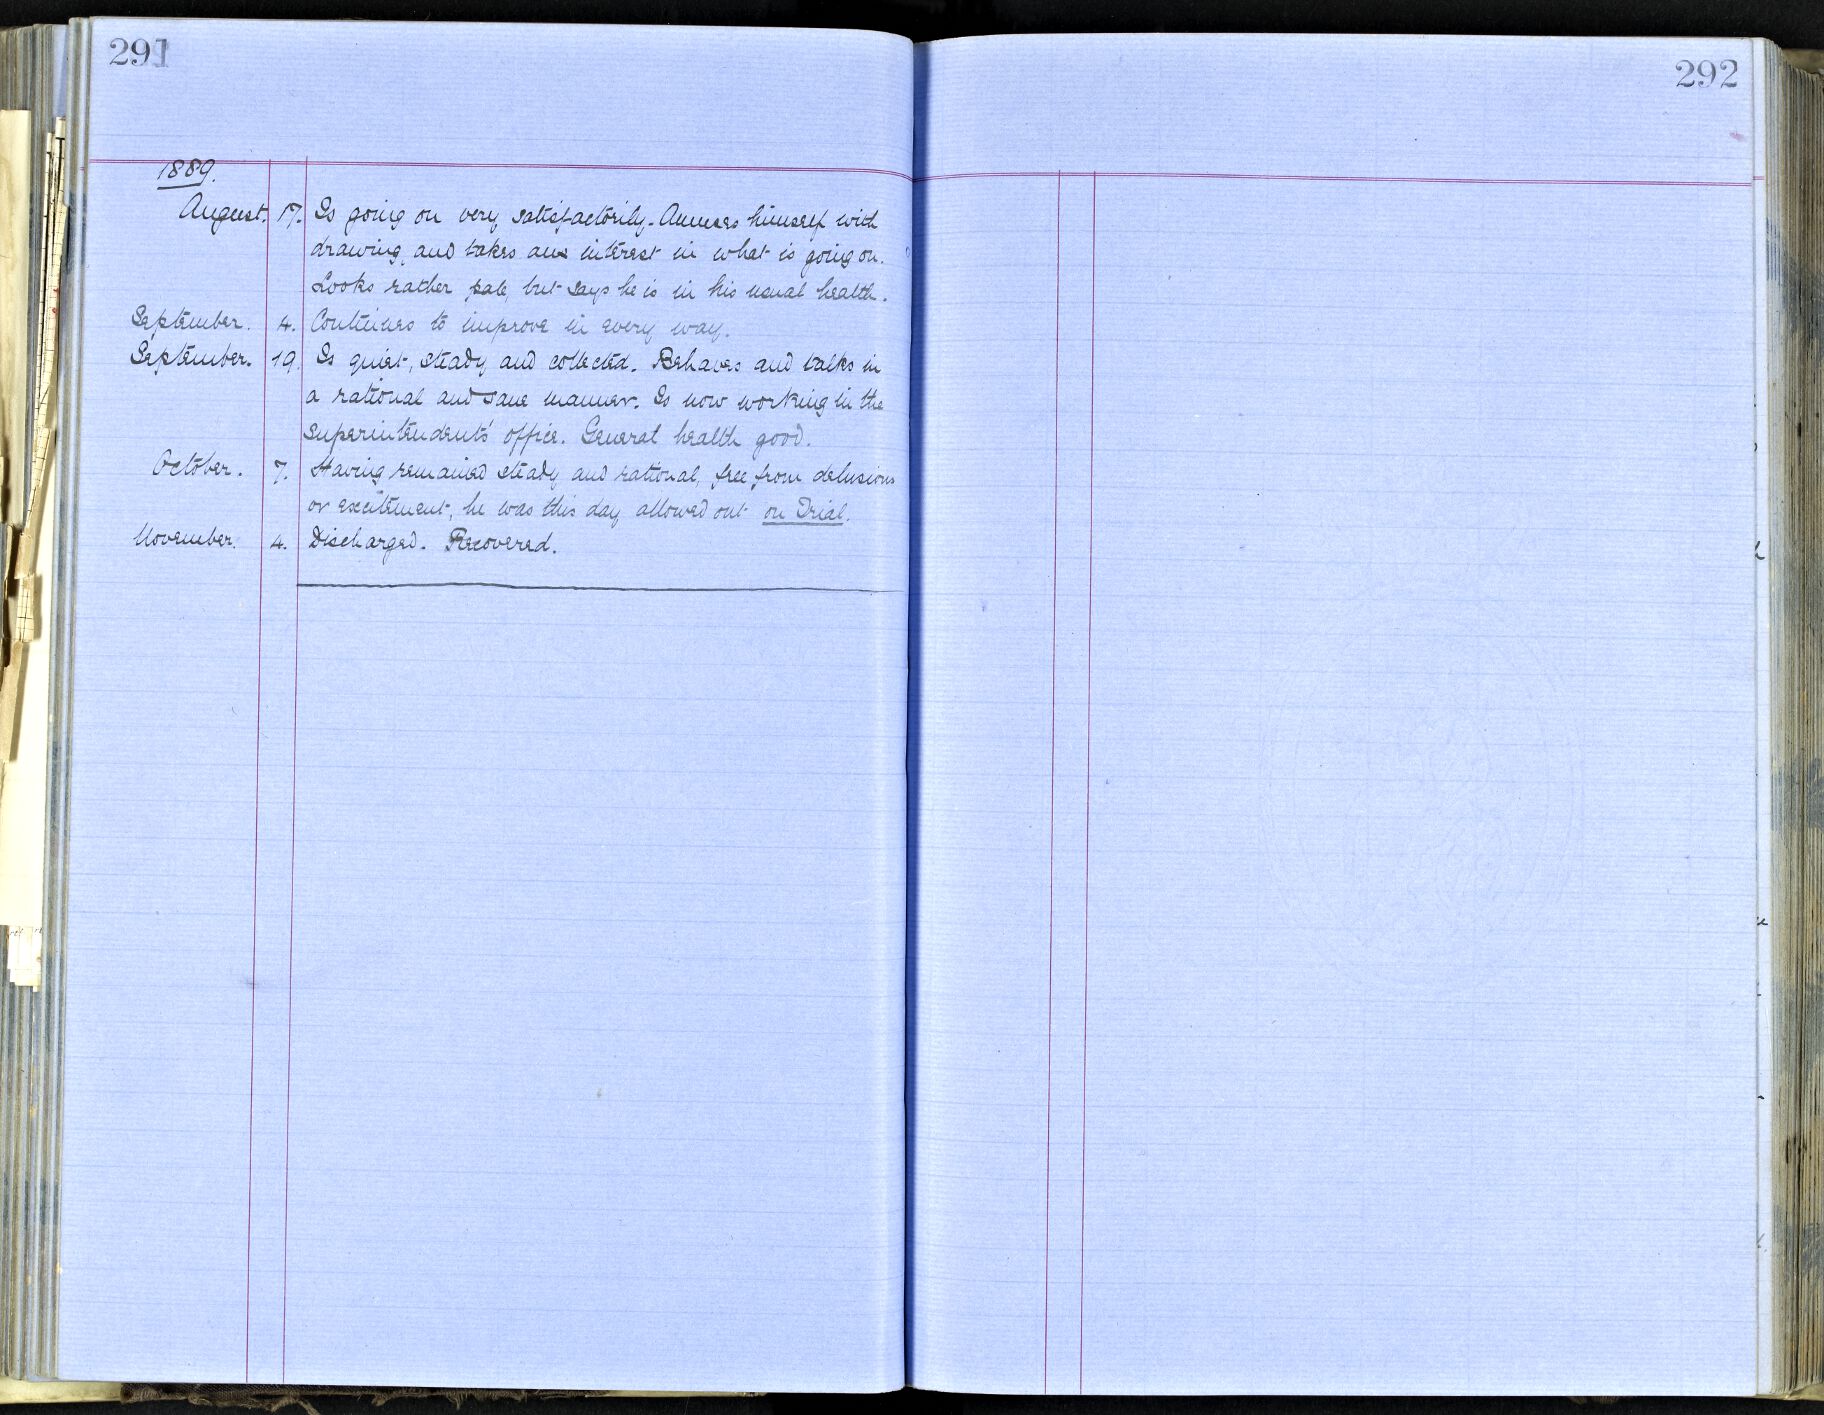 291
1889.
August. 17. Is going on very satisfactorily. Amuses himself with
drawing, and takes an interest in what is going on.
Looks rather pale, but says he is in his usual health.
September. 4. Continues to improve in every way.
September. 19. Is quiet, steady and collected. Behaves and talks in
a rational and sane manner. Is now working in the
Superintendents' office. General health good.
October. 7. Having remained steady and rational, free from delusions
or excitement, he was this day allowed out on Trial.
November. 4. Discharged. Recovered.
292